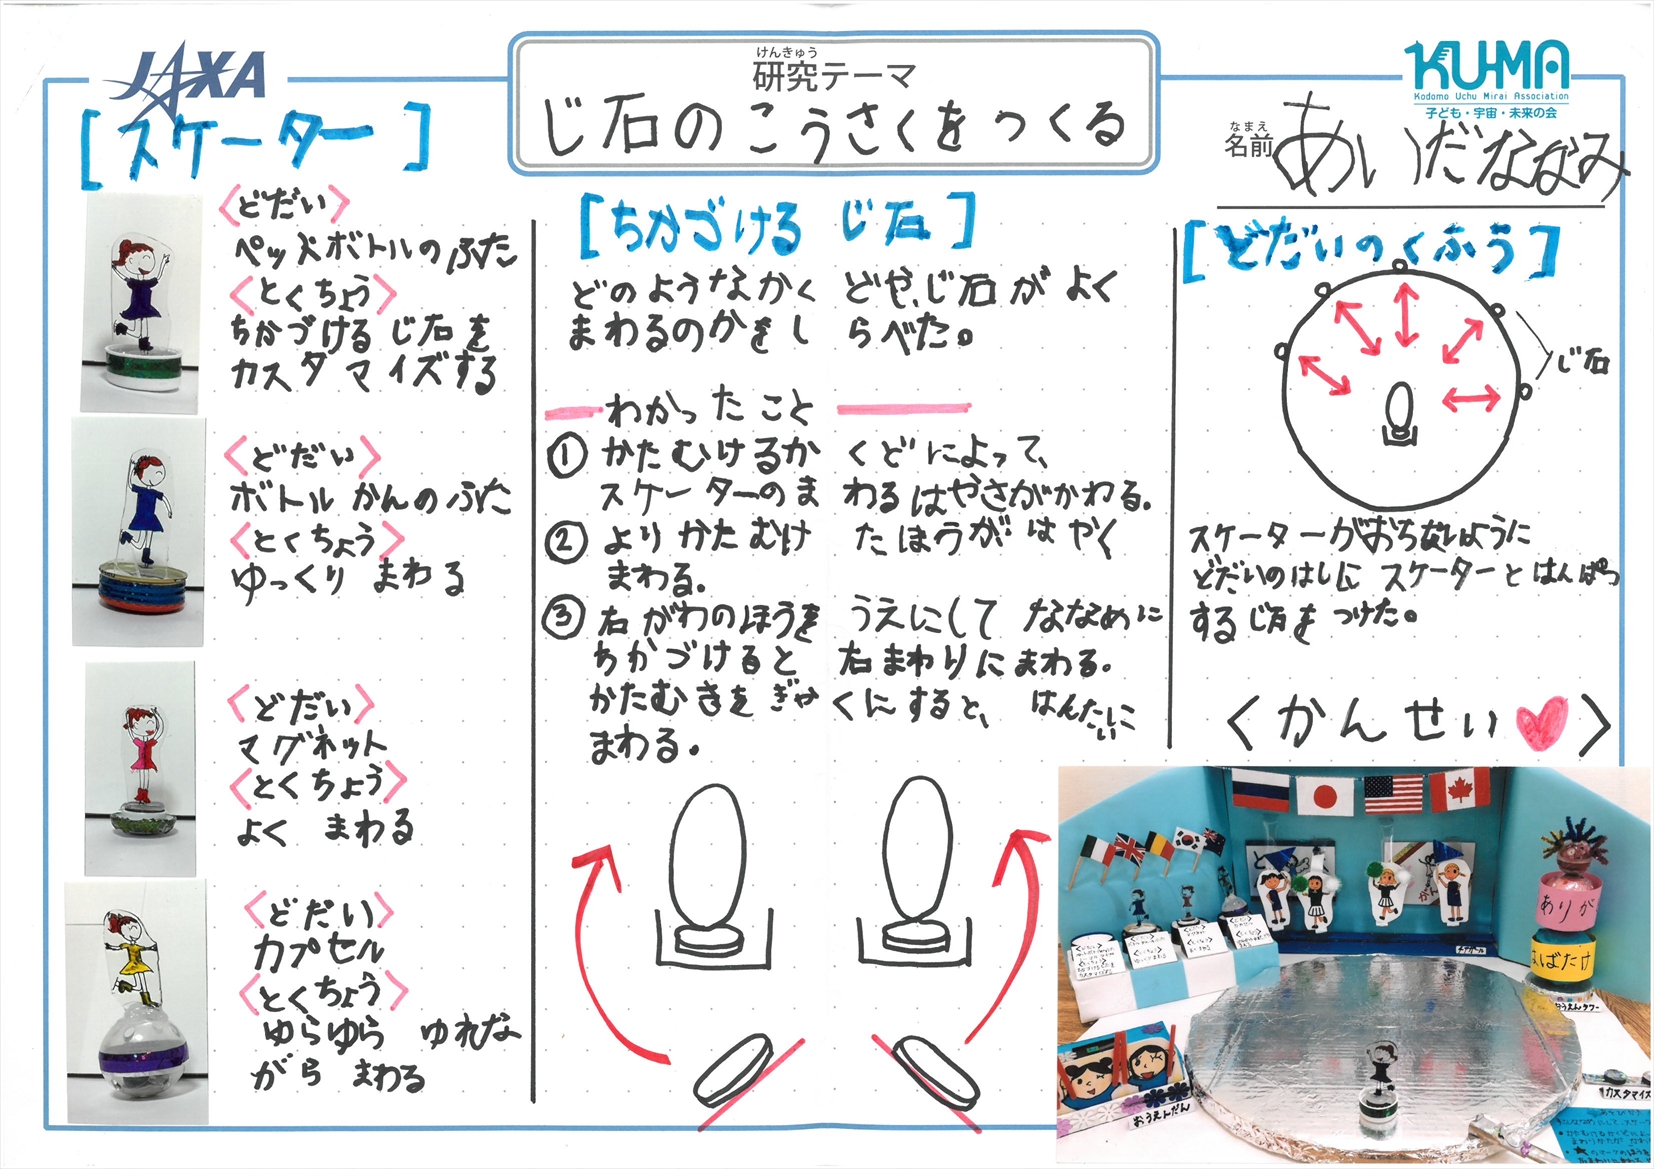 JAXA
けんきゅう
研究テーマ
じ石のこうさくをつくる
KU-MA
Kodomo Uchu Mirai Association
子ども・宇宙・未来の会
なまえ
名前
あいだななみ
[スケーター]
<どだい>
ペットボトルのふた
<とくちょう>
ちかづけるじ石を
カスタマイズする
<どだい>
ボトルかんのふた
<とくちょう>
ゆっくり まわる
<どだい>
マグネット
<とくちょう>
よく まわる
<どだい>
カプセル
<とくちょう>
ゆらゆら ゆれな
がら まわる
[ちかづける じ石]
どのようなかくどや、じ石がよく
まわるのかをしらべた。
わかったこと
① かたむけるかくどによって、
スケーターのまわるはやさがかわる。
② よりかたむけたほうがはやく
まわる。
③ 右がわのほうをうえにしてななめに
ちかづけると右まわりにまわる。
かたむきをぎゃくにすると、はんたいに
まわる。
[どだいのくふう]
じ石
スケーターがおちないように
どだいのはしにスケーターとはんぱつ
するじ石をつけた。
<かんせい>
ありが
はばたけ
おうえんタワー
おうえんだん
カスタマイズ